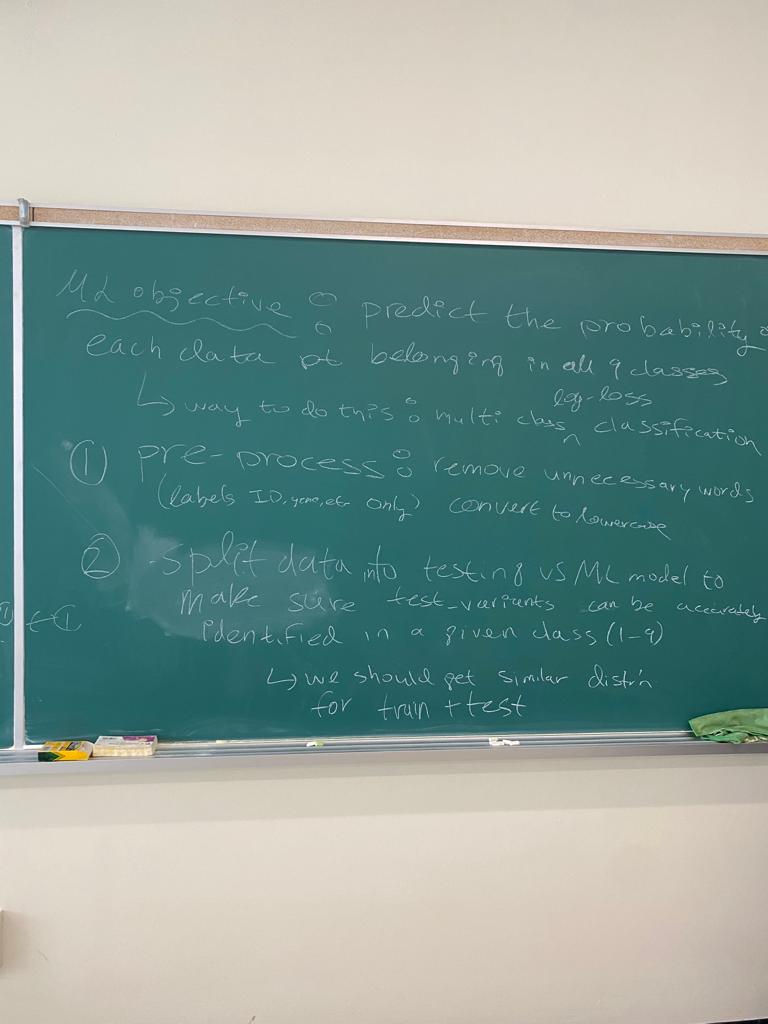 ML objective : predict the probability
each data pt belonging in all 9 classes,
log-loss
↳ way to do this : multi class ^ classification
① pre-process : remove unnecessary words
(labels ID, gene, etc only) convert to lowercase
② split data into testing vs ML model to
make sure test_variants can be accurately
identified in a given class (1-9)
↳ we should get similar distr'n
for train + test